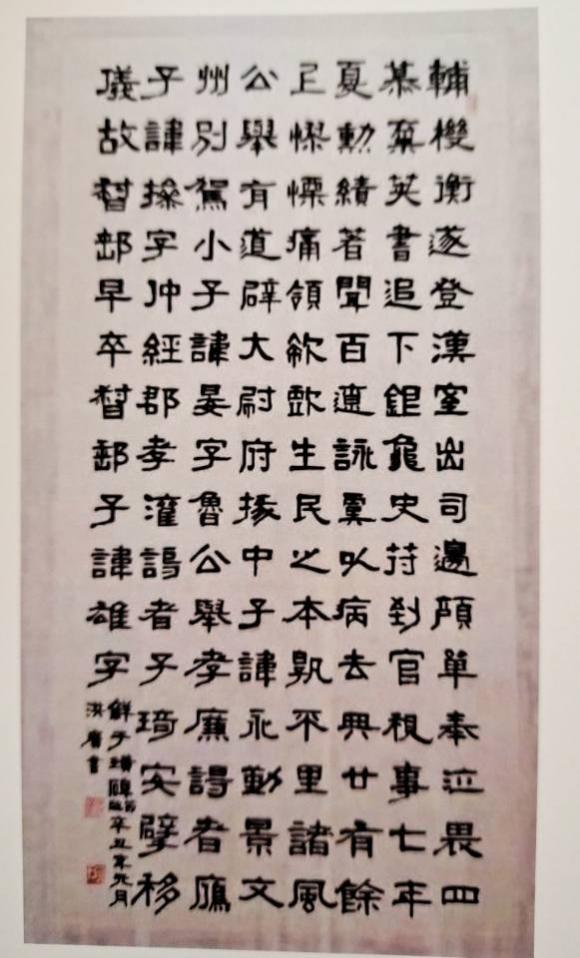 輔機衡遂登漢室出司邊頏單奉泣畏四
慕棄英書追下銀龜史符到官視事七年
夏勳績著聞百遼詠虞以病去興廿有餘
正慘慄痛領欷歔生民之本孰不里諸風
公舉有道辟大尉府掾中子諱永動景文
州別駕小子諱晏字魯公舉孝廉謁者雁
子諱操字仲經郡孝灌謁者子琦安辟移
儀故督郵早卒督郵子諱雄字
鮮于璜碑 辛丑年九月
洪書